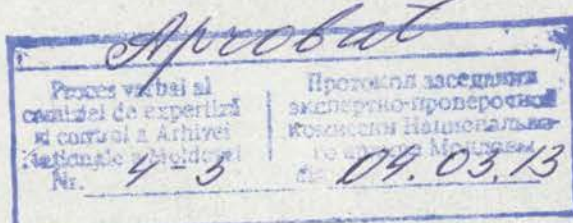 Aprobat
Proces verbal al
comisiei de expertiză
și control a Arhivei
Naționale a Moldovei
Nr. 4-3
Протокол заседания
экспертно-проверочной
комиссии Национально-
го архива Молдовы
din 04.03.13